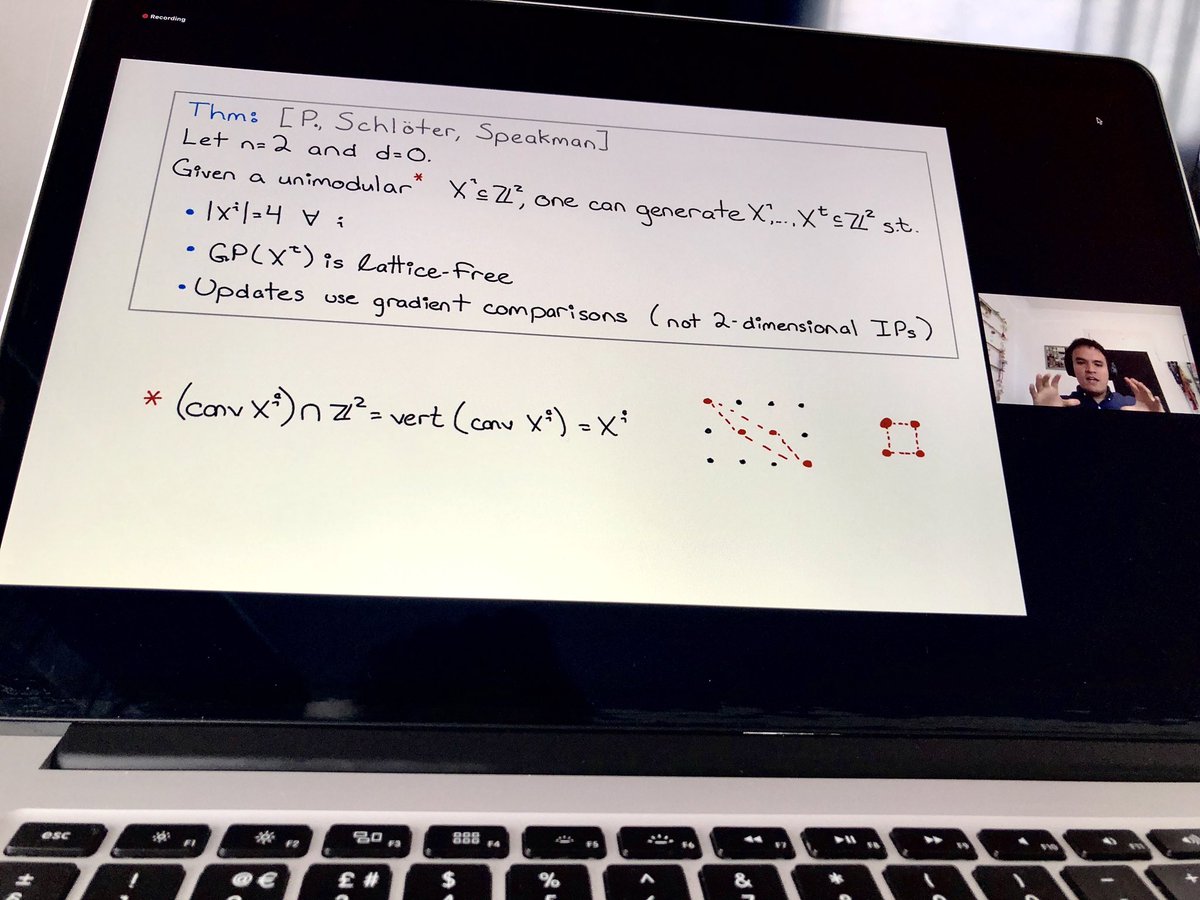 Recording
Thm: [P., Schlöter, Speakman]
Let n=2 and d=0.
Given a unimodular* X¹⊆ℤ², one can generate X¹,...,Xᵗ⊆ℤ² s.t.
• |Xⁱ|=4 ∀ i
• GP(Xᵗ) is lattice-free
• Updates use gradient comparisons (not 2-dimensional IPs)
* (conv Xⁱ)∩ℤ² = vert (conv Xⁱ) = Xⁱ
esc F1 F2 F3 F4 F5 F6 F7 F8 F9 F10 F11
± ! @ € £ # $ % ^ & * ( ) – +